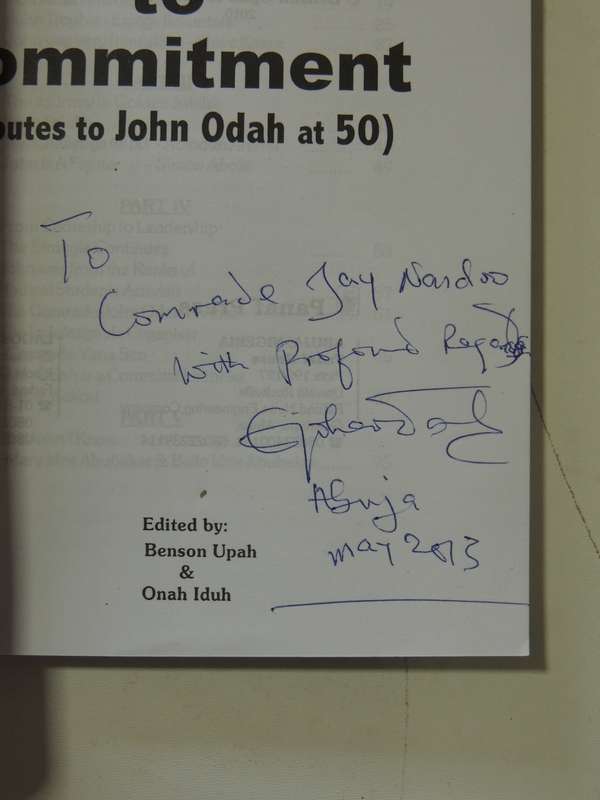 to
ommitment
butes to John Odah at 50)
To
Comrade Jay Nardoo
With Profound Regards
Abuja
May 2013
Edited by:
Benson Upah
&
Onah Iduh